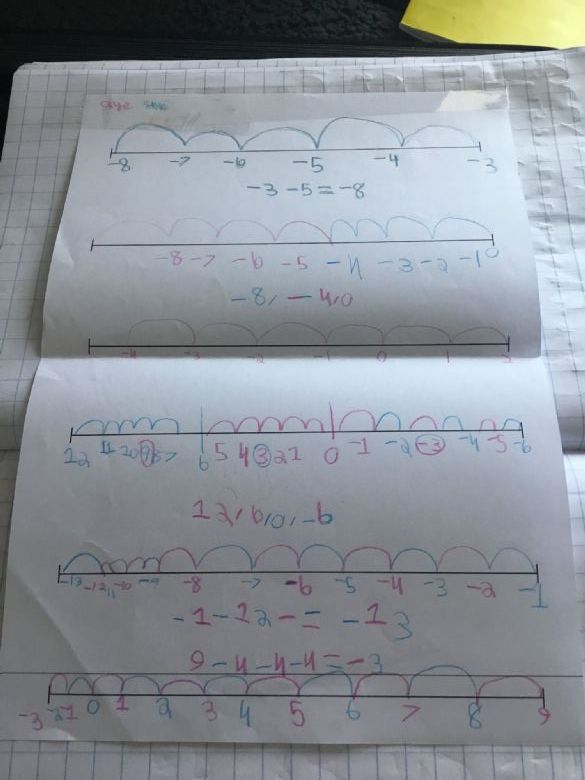 -8 -7 -6 -5 -4 -3
-3 -5 = -8
-8 -7 -6 -5 -4 -3 -2 -1 0
-8, -4, 0
-4 -3 -2 -1 0 1 2
12 11 10 9 8 7 6 5 4 3 2 1 0 -1 -2 -3 -4 -5 -6
12, 6, 0, -6
-13 -12 -11 -10 -9 -8 -7 -6 -5 -4 -3 -2 -1
-1 -12 - = -13
9 -4 -4 -4 = -3
-3 -2 -1 0 1 2 3 4 5 6 7 8 9